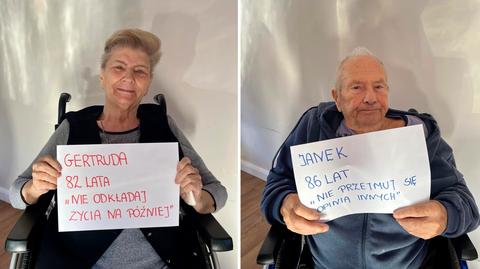 GERTRUDA
82 LATA
„NIE ODKŁADAJ
ŻYCIA NA PÓŹNIEJ"
JANEK
86 LAT
„NIE PRZEJMUJ SIĘ
OPINIA INNYCH"